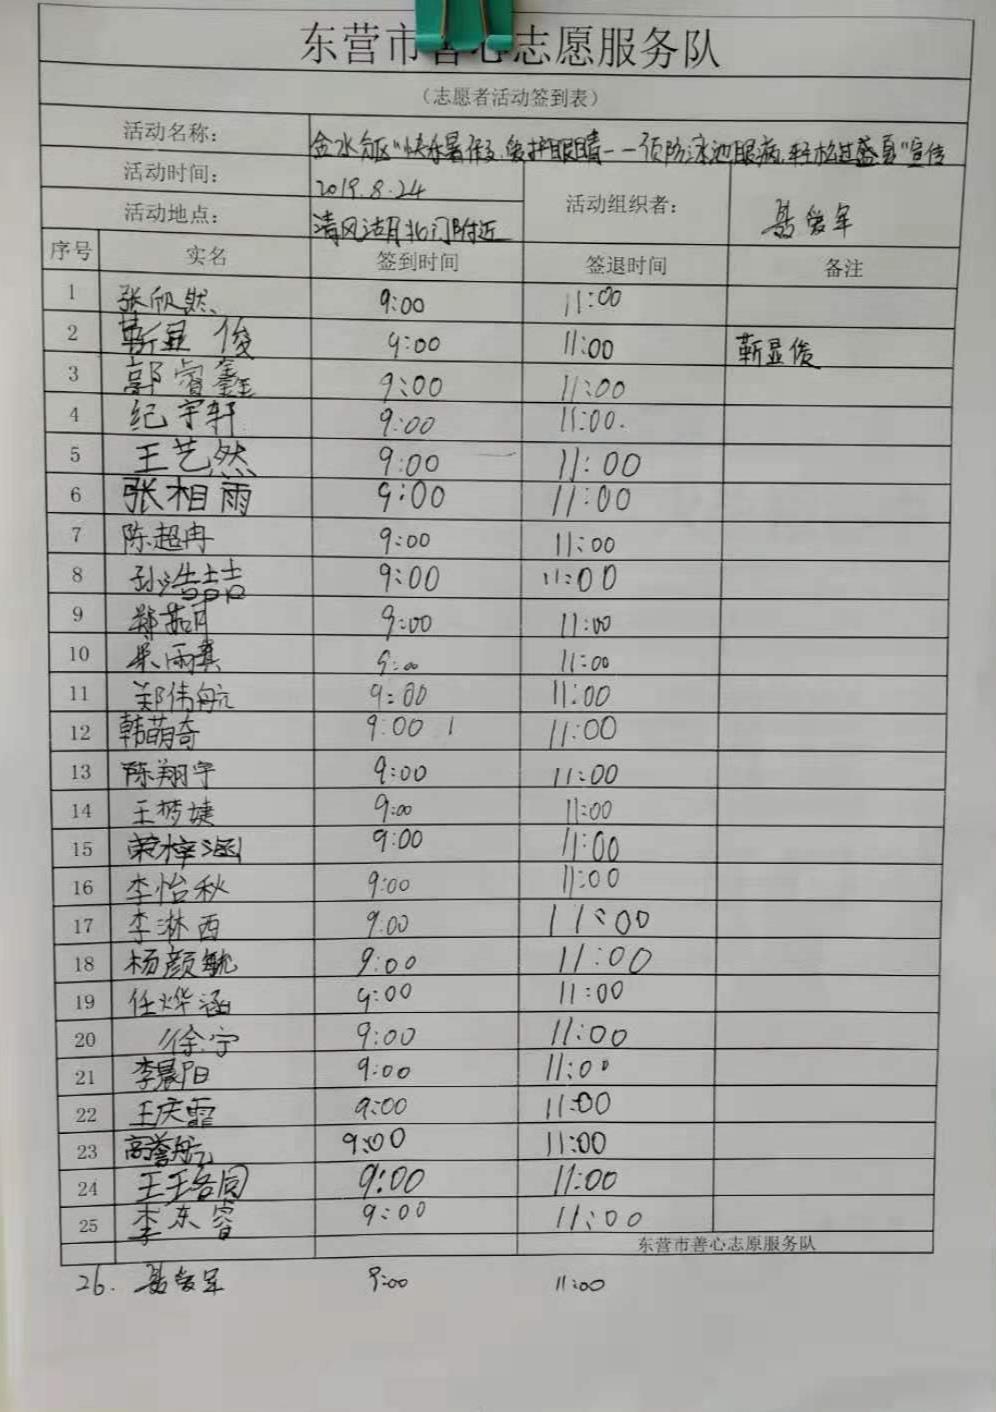 东营市善心志愿服务队
（志愿者活动签到表）
活动名称： 金水社区“快乐暑假，爱护眼睛--预防泳池眼病，轻松过盛夏”宣传
活动时间： 2019.8.24
活动组织者： 聂爱军
活动地点： 清风湖北门附近
序号 实名 签到时间 签退时间 备注
1 张欣然 9:00 11:00
2 靳显俊 9:00 11:00 靳显俊
3 郭睿鑫 9:00 11:00
4 纪宇轩 9:00 11:00.
5 王艺然 9:00 11:00
6 张相雨 9:00 11:00
7 陈超冉 9:00 11:00
8 孙浩喆 9:00 11:00
9 郑茹月 9:00 11:00
10 雨真 9:00 11:00
11 郑伟航 9:00 11:00
12 韩萌奇 9:00 11:00
13 陈翔宇 9:00 11:00
14 王梦婕 9:00 11:00
15 荣梓涵 9:00 11:00
16 李怡秋 9:00 11:00
17 李淋西 9:00 11:00
18 杨颜毓 9:00 11:00
19 任烨涵 9:00 11:00
20 徐宁 9:00 11:00
21 李晨阳 9:00 11:00
22 王庆霏 9:00 11:00
23 高誉航 9:00 11:00
24 王珞同 9:00 11:00
25 李东睿 9:00 11:00
东营市善心志原服务队
26. 聂爱军 9:00 11:00